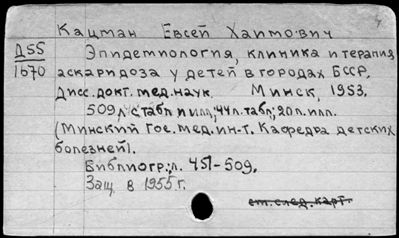 Кацман Евсей Хаимович
Д55
1670
Эпидемиология, клиника и терапия
аскаридоза у детей в городах БССР.
Дисс. докт. мед. наук. Минск, 1953.
509 л. с табл и илл; 44л. табл; 20л. илл.
(Минский Гос. мед. ин-т. Кафедра детских
болезней).
Библиогр: л. 451-509.
Защ. в 1955 г.
см. след. карт.